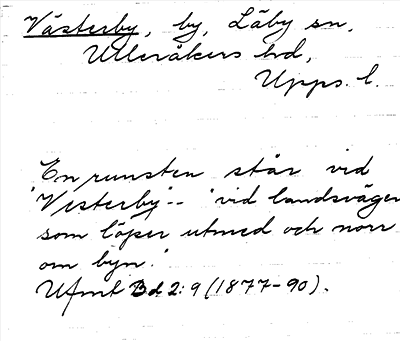 Västerby, by, Läby sn,
Ulleråkers hd,
Upps. l.
"En runsten står vid
'Vesterby'-- vid landsvägen
som löper utmed och norr
om byn."
Ufmt Bd 2:9 (1877-90).